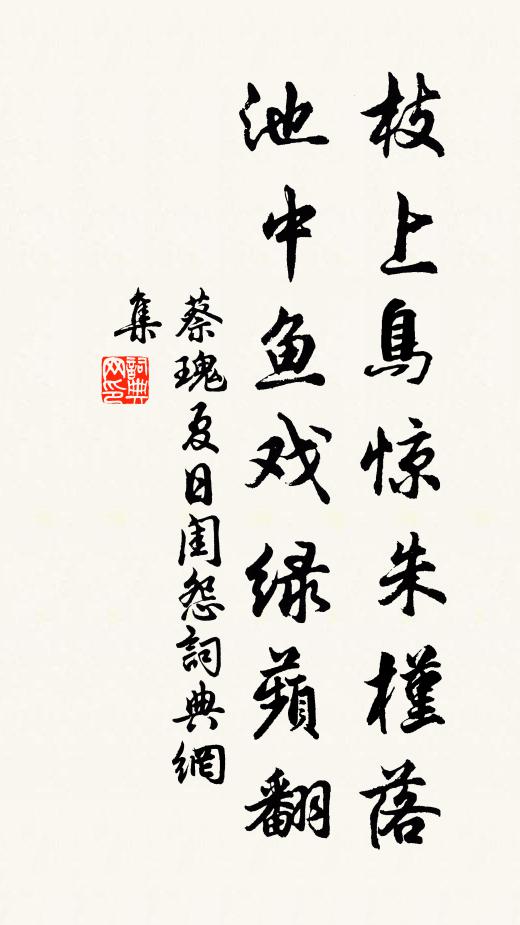 枝上鳥惊朱槿落
池中鱼戏绿蘋翻
蔡瑰夏日闺怨詞典網
集
詞典网印